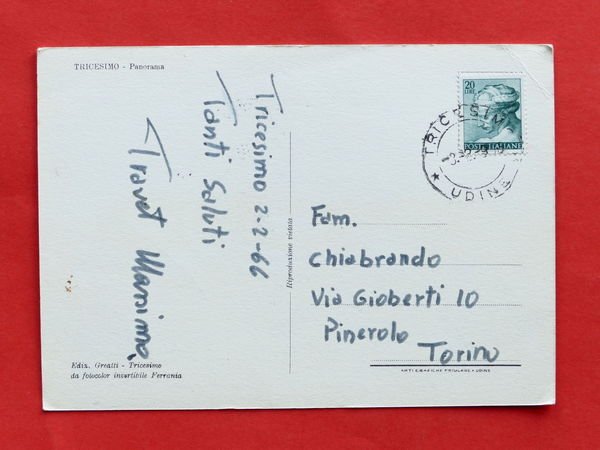 TRICESIMO - Panorama
Tricesimo 2-2-66
Tanti Saluti
Travet Massimo
Edix. Greatti - Tricesimo
da fotocolor invertibile Ferrania
Riproduzione vietata
20
LIRE
POSTE ITALIANE
TRICESIM
UDINE
Fam.
Chiabrando
Via Gioberti 10
Pinerolo
Torino
ARTI GRAFICHE FRIULANE - UDINE